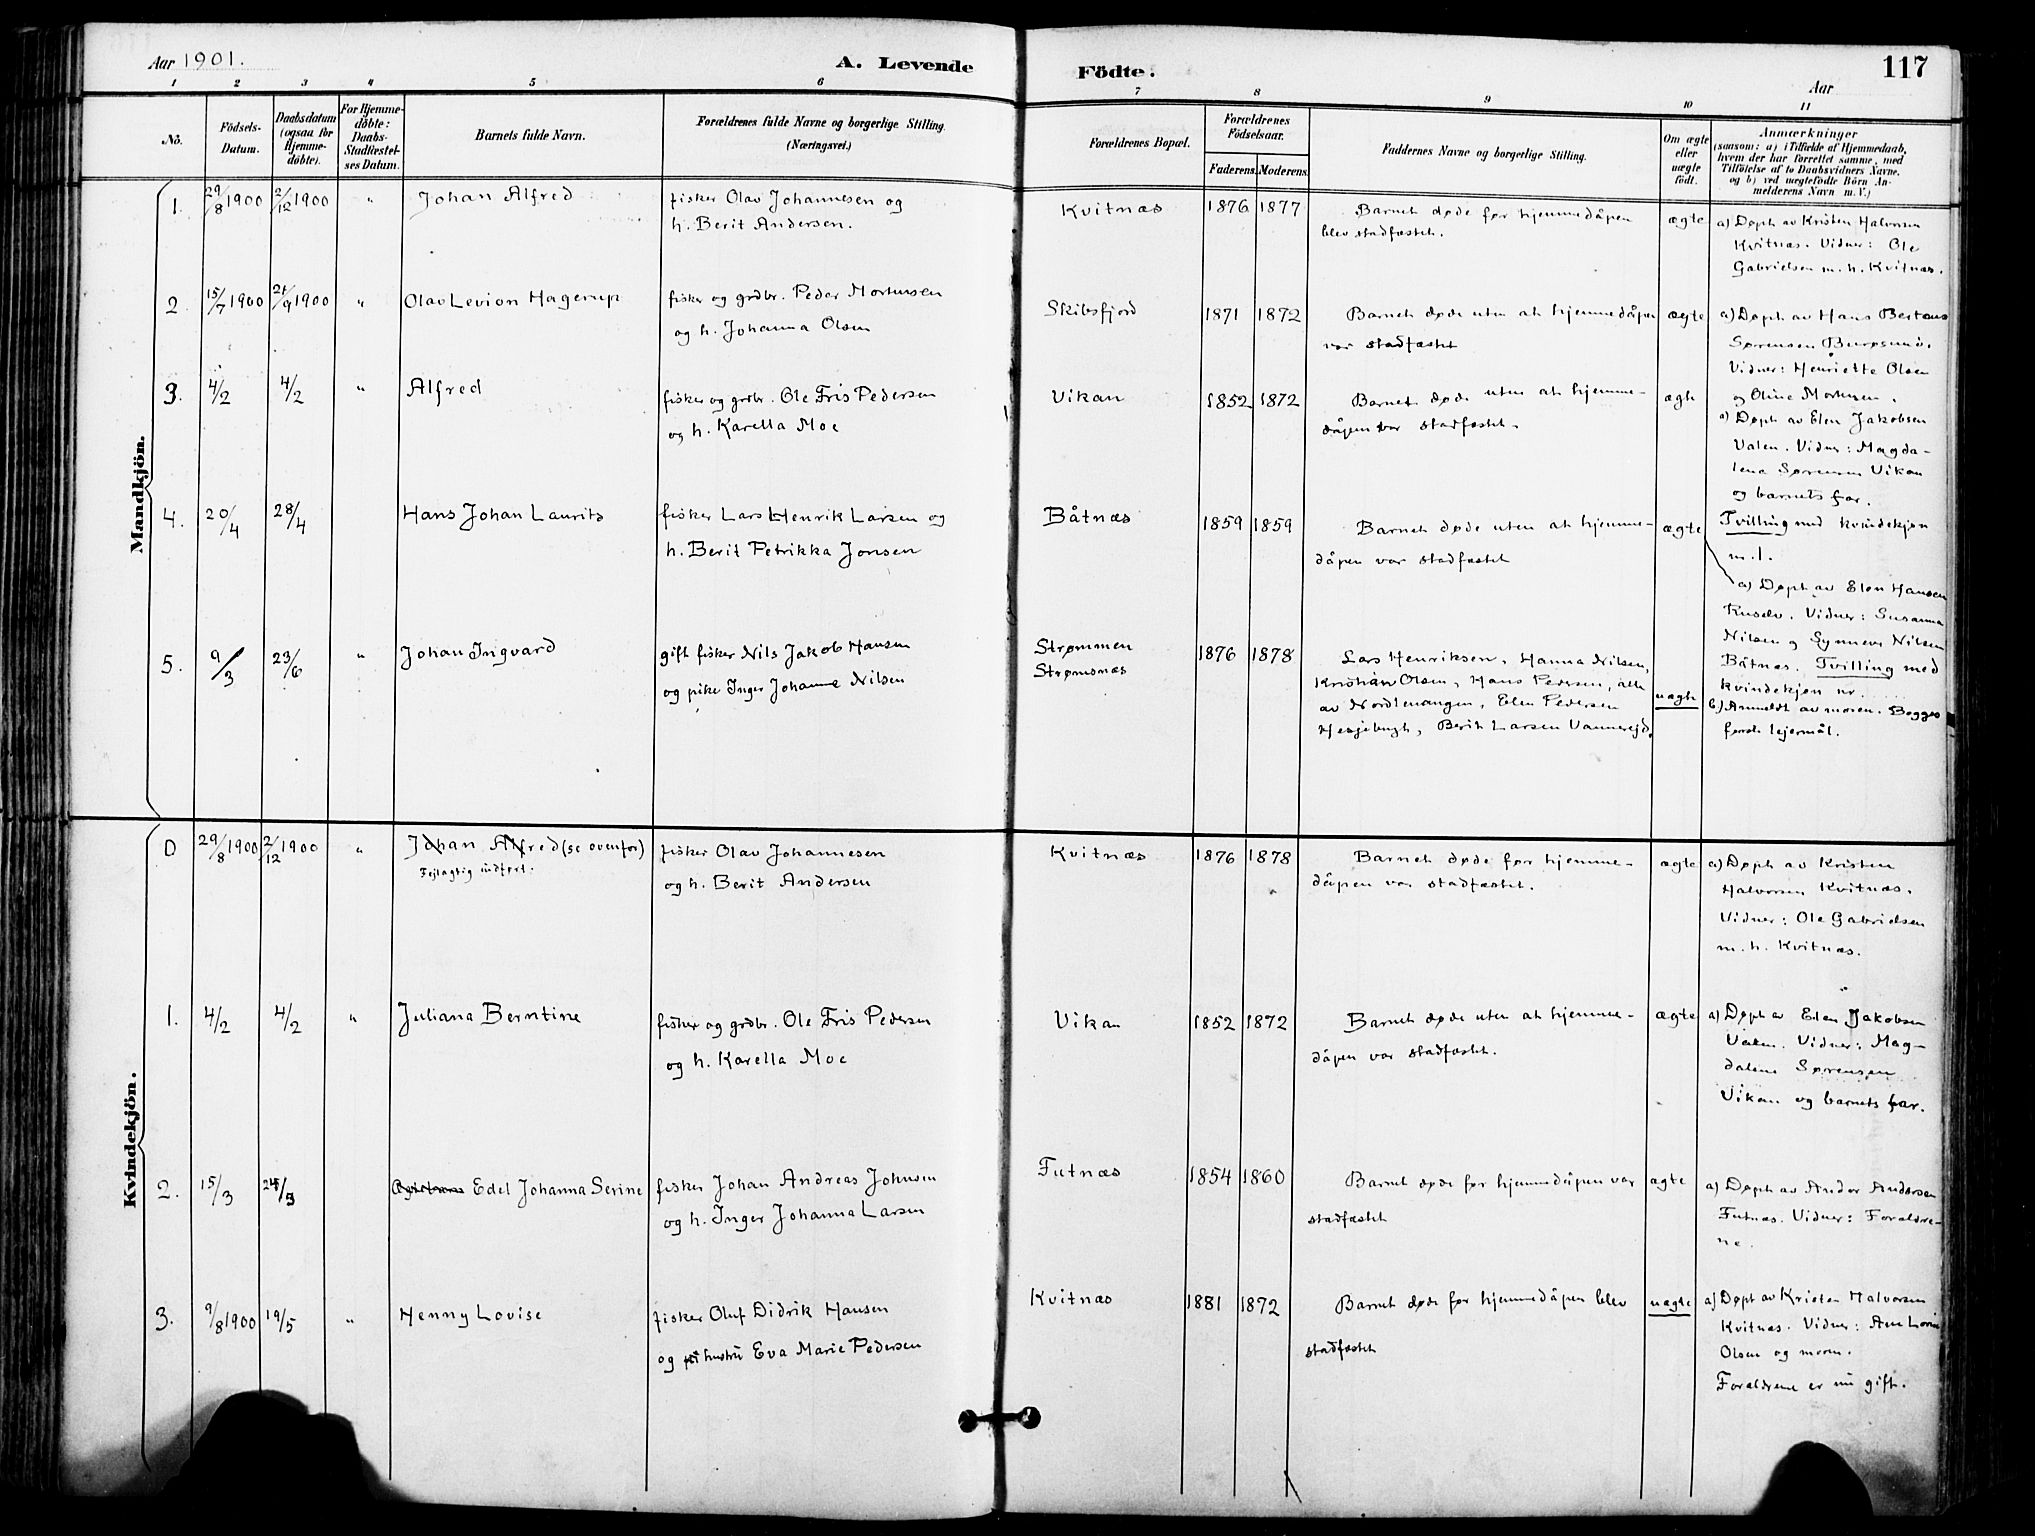 Aar 1901.
A. Levende
Födte.
117
Aar
1 2 3 4 5 6 7 8 9 10 11
No.
Födsels-
Datum.
Daabsdatum
(ogsaa for
Hjemme-
döbte).
For Hjemme-
döbte:
Daabs-
Stadfæstel-
ses Datum.
Barnets fulde Navn.
Forældrenes fulde Navne og borgerlige Stilling.
(Næringsvei.)
Forældrenes Bopæl.
Forældrenes
Födselsaar.
Faderens.
Moderens.
Faddernes Navne og borgerlige Stilling.
Om ægte
eller
uægte
födt.
Anmærkninger
(saasom: a) i Tilfælde af Hjemmedaab,
hvem der har forrettet samme, med
Tilföielse af to Daabsvidners Navne.
og b) ved uægtefödte Börn An-
melderens Navn m. V.)
Mandkjön.
1. 29/8 1900 2/12 1900 " Johan Alfred
fisker Olav Johannesen og
h. Berit Andersen.
Kvitnæs 1876 1877
Barnet døde før hjemmedåpen
blev stadfæstet.
ægte
a) Døpt av Kristen Halvorsen
Kvitnæs. Vidner: Ole
Gabrielsen m. h. Kvitnæs.
2. 15/7 1900 21/9 1900 " Olav Levion Hagerup
fisker og grdbr. Peder Mortensen
og h. Johanna Olsen
Skibsfjord 1871 1872
Barnet døde uten at hjemmedåpen
var stadfæstet
ægte
a) Døpt av Hans Berteus
Sørensen
Vidner: Henriette Olsen
og Oline Mortensen.
3. 4/2 4/2 " Alfred
fisker og grdbr. Ole Fris Pedersen
og h. Karella Moe
Vikan 1852 1872
Barnet døde uten at hjemme-
dåpen var stadfæstet.
ægte
a) Døpt av Elen Jakobsen
Valen. Vidner: Magda-
lena Sørensen Vikan
og barnets far.
4. 20/4 28/4 Hans Johan Laurits
fisker Lars Henrik Larsen og
h. Berit Petrikka Jonsen
Båtnæs 1859 1859
Barnet døde uten at hjemme-
dåpen var stadfæstet
ægte
Tvilling med kvindekjøn
nr. 1.
a) Døpt av Elen Hansen
Vidner: Susanna
Nilsen og Synneve Nilsen
Båtnæs. Tvilling med
kvindekjøn nr.
5. 9/3 23/6 " Johan Ingvard
gift fisker Nils Jakob Hansen
og pike Inger Johanne Nilsen
Strømmen
Strømsnæs
1876 1878
Lars Henriksen, Hanna Nilsen,
Kristian Olsen, Hans Pedersen, alle
av Nordlenangen, Elen Pedersen
Berit Larsen Vannereid.
uægte
b) Anmeldt av moren. Begges
første lejermål.
Kvindekjön.
0 29/8 1900 2/12 1900 " Johan Alfred (se ovenfor)
Fejlagtig indført.
fisker Olav Johannesen
og h. Berit Andersen
Kvitnæs 1876 1878
Barnet døde før hjemme-
dåpen var stadfæstet.
ægte
a) Døpt av Kristen
Halvorsen Kvitnæs.
Vidner: Ole Gabrielsen
m. h. Kvitnæs.
1. 4/2 4/2 " Juliana Berntine
fisker og grdbr. Ole Fris Pedersen
og h. Karella Moe
Vikan 1852 1872
Barnet døde uten at hjemme-
dåpen var stadfæstet.
ægte
a) Døpt av Elen Jakobsen
Valen. Vidner: Mag-
dalena Sørensen
Vikan og barnets far.
2. 15/3 Edel Johanna Serine
fisker Johan Andreas Johnsen
og h. Inger Johanna Larsen
Futnæs 1854 1860
Barnet døde før hjemmedåpen var
stadfæstet
ægte
a) Døpt av Andor Andersen
Futnæs. Vidner: Forældre-
ne.
3. 9/8 1900 19/5 " Henny Lovise
fisker Oluf Didrik Hansen
og hustru Eva Marie Pedersen
Kvitnæs 1881 1872
Barnet døde før hjemmedåpen blev
stadfæstet
uægte
a) Døpt av Kristen Halvorsen
Kvitnæs. Vidner: Ane Lovise
Olsen og moren.
Forældrene er nu gift.